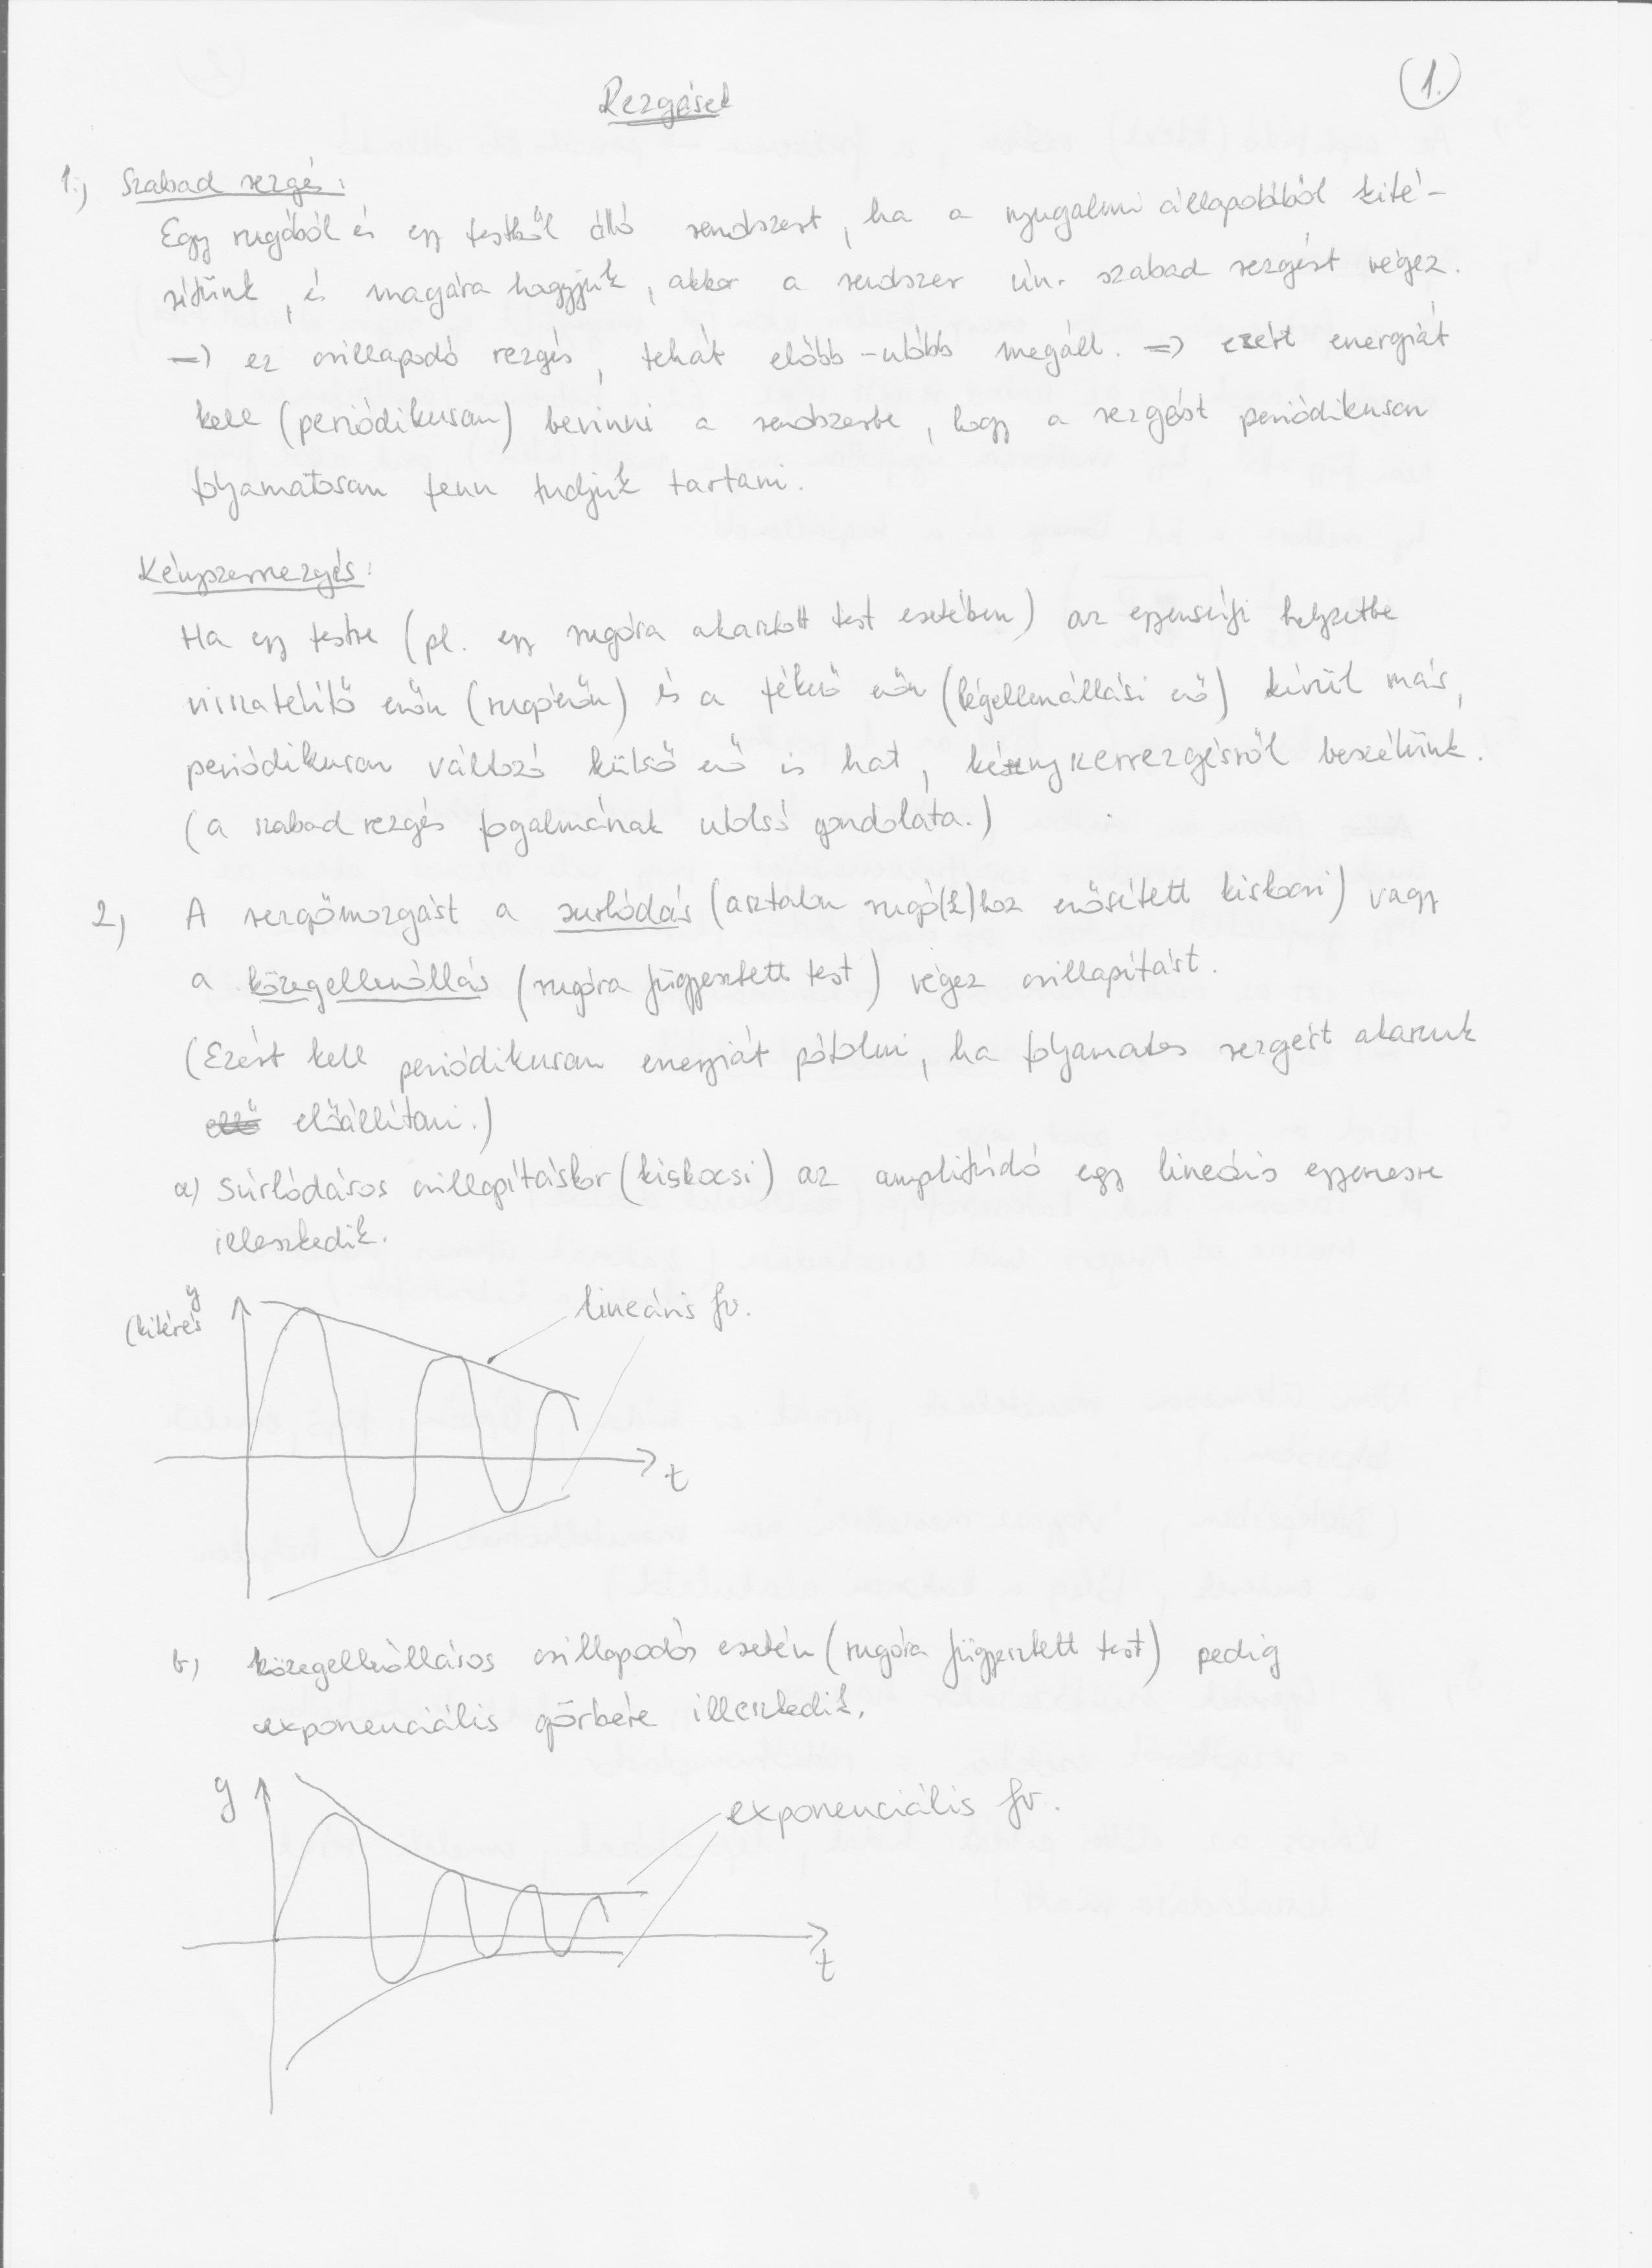 1.
Rezgések
1.) Szabad rezgés:
Egy rugóból és egy testből álló rendszert, ha a nyugalmi állapotából kité-
rítünk, és magára hagyjuk, akkor a rendszer ún. szabad rezgést végez.
=> ez csillapodó rezgés, tehát előbb-utóbb megáll. => ezért energiát
kell (periódikusan) bevinni a rendszerbe, hogy a rezgést periódikusan
folyamatosan fenn tudjuk tartani.
Kényszerrezgés:
Ha egy testre (pl. egy rugóra akasztott test esetében) az egyensúlyi helyzetbe
visszatérítő erőn (rugóerőn) és a fékező erőn (légellenállási erő) kívül más,
periódikusan változó külső erő is hat, kényszerrezgésről beszélünk.
(a szabad rezgés fogalmának utolsó gondolata.)
2,) A rezgőmozgást a surlódás (asztalon rugó(k)hoz erősített kiskocsi) vagy
a közegellenállás (rugóra függesztett test) végez csillapítást.
(Ezért kell periódikusan energiát pótolni, ha folyamatos rezgést akarunk
előállítani.)
a) Súrlódásos csillapításkor (kiskocsi) az amplitúdó egy lineáris egyenesre
illeszkedik.
y
(kitérés
lineáris fv.
t
b) közegellenállásos csillapodás esetén (rugóra függesztett test) pedig
exponenciális görbére illeszkedik.
y
exponenciális fv.
t